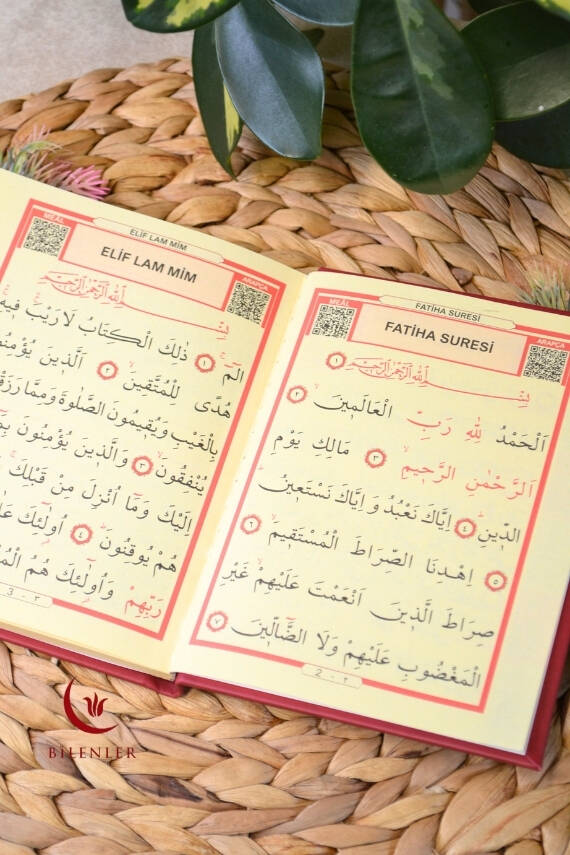 FATİHA SURESİ
MEÂL
FATİHA SURESİ
ARAPÇA
بِسْمِ اللّٰهِ الرَّحْمٰنِ الرَّحِيمِ ١
اَلْحَمْدُ لِلّٰهِ رَبِّ الْعَالَمِينَ ٢
اَلرَّحْمٰنِ الرَّحِيمِ ٣ مَالِكِ يَوْمِ
الدِّينِ ٤ اِيَّاكَ نَعْبُدُ وَاِيَّاكَ نَسْتَعِينُ
٥ اِهْدِنَا الصِّرَاطَ الْمُسْتَقِيمَ ٦
صِرَاطَ الَّذِينَ اَنْعَمْتَ عَلَيْهِمْ غَيْرِ
الْمَغْضُوبِ عَلَيْهِمْ وَلَا الضَّالِّينَ ٧
2 - ٢
ELİF LAM MİM
MEÂL
ELİF LAM MİM
ARAPÇA
بِسْمِ اللّٰهِ الرَّحْمٰنِ الرَّحِيمِ
الٓمٓ ١ ذٰلِكَ الْكِتَابُ لَا رَيْبَ فِيهِ
هُدًى لِلْمُتَّقِينَ ٢ اَلَّذِينَ
بِالْغَيْبِ وَيُقِيمُونَ الصَّلٰوةَ وَمِمَّا
يُنْفِقُونَ ٣ وَالَّذِينَ يُؤْمِنُونَ
اِلَيْكَ وَمَا اُنْزِلَ مِنْ قَبْلِكَ
هُمْ يُوقِنُونَ ٤ اُولٰئِكَ
رَبِّهِمْ وَاُولٰئِكَ هُمُ
3 - ٣
BİLENLER